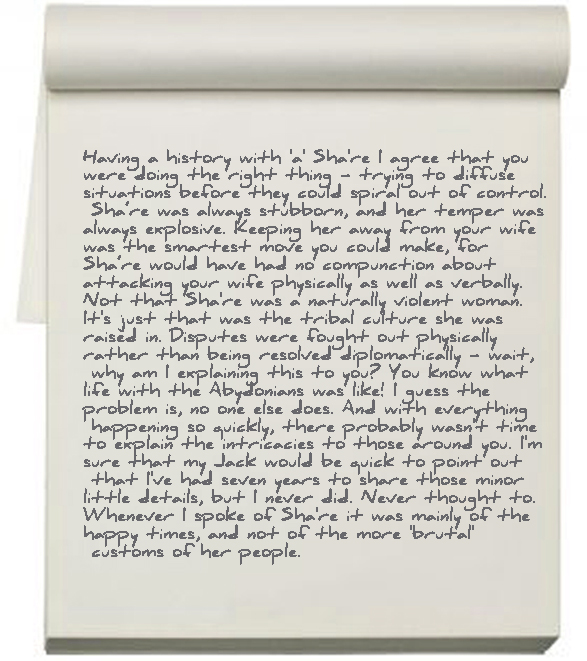 Having a history with 'a' Sha're I agree that you
were doing the right thing - trying to diffuse
situations before they could spiral out of control.
Sha're was always stubborn, and her temper was
always explosive. Keeping her away from your wife
was the smartest move you could make, for
Sha're would have had no compunction about
attacking your wife physically as well as verbally.
Not that Sha're was a naturally violent woman.
It's just that was the tribal culture she was
raised in. Disputes were fought out physically
rather than being resolved diplomatically - wait,
why am I explaining this to you? You know what
life with the Abydonians was like! I guess the
problem is, no one else does. And with everything
happening so quickly, there probably wasn't time
to explain the intricacies to those around you. I'm
sure that my Jack would be quick to point out
that I've had seven years to share those minor
little details, but I never did. Never thought to.
Whenever I spoke of Sha're it was mainly of the
happy times, and not of the more 'brutal'
customs of her people.